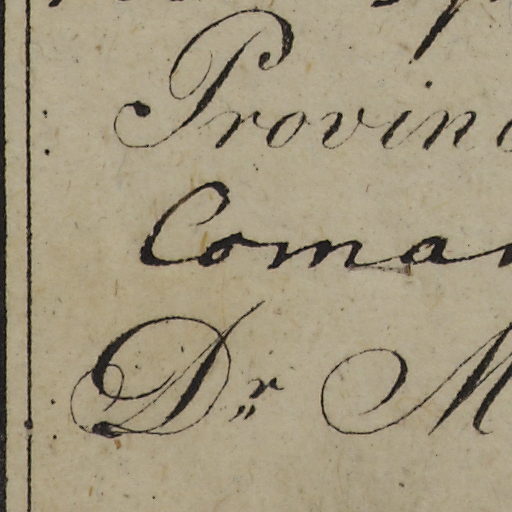 Provin
Coma
Dr M